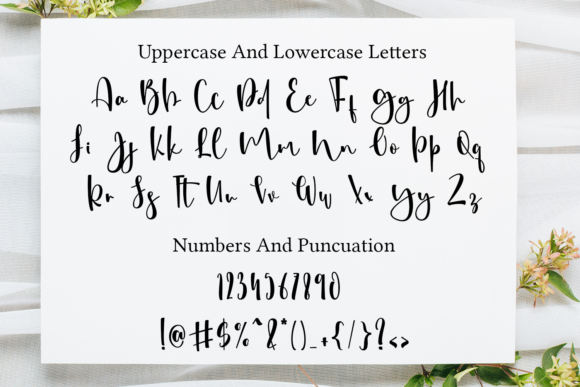 Uppercase And Lowercase Letters
Aa Bb Cc Dd Ee Ff Gg Hh
Ii Jj Kk Ll Mm Nn Oo Pp Qq
Rr Ss Tt Uu Vv Ww Xx Yy Zz
Numbers And Puncuation
1234567890
!@#$%^&*()_+{/}?<>